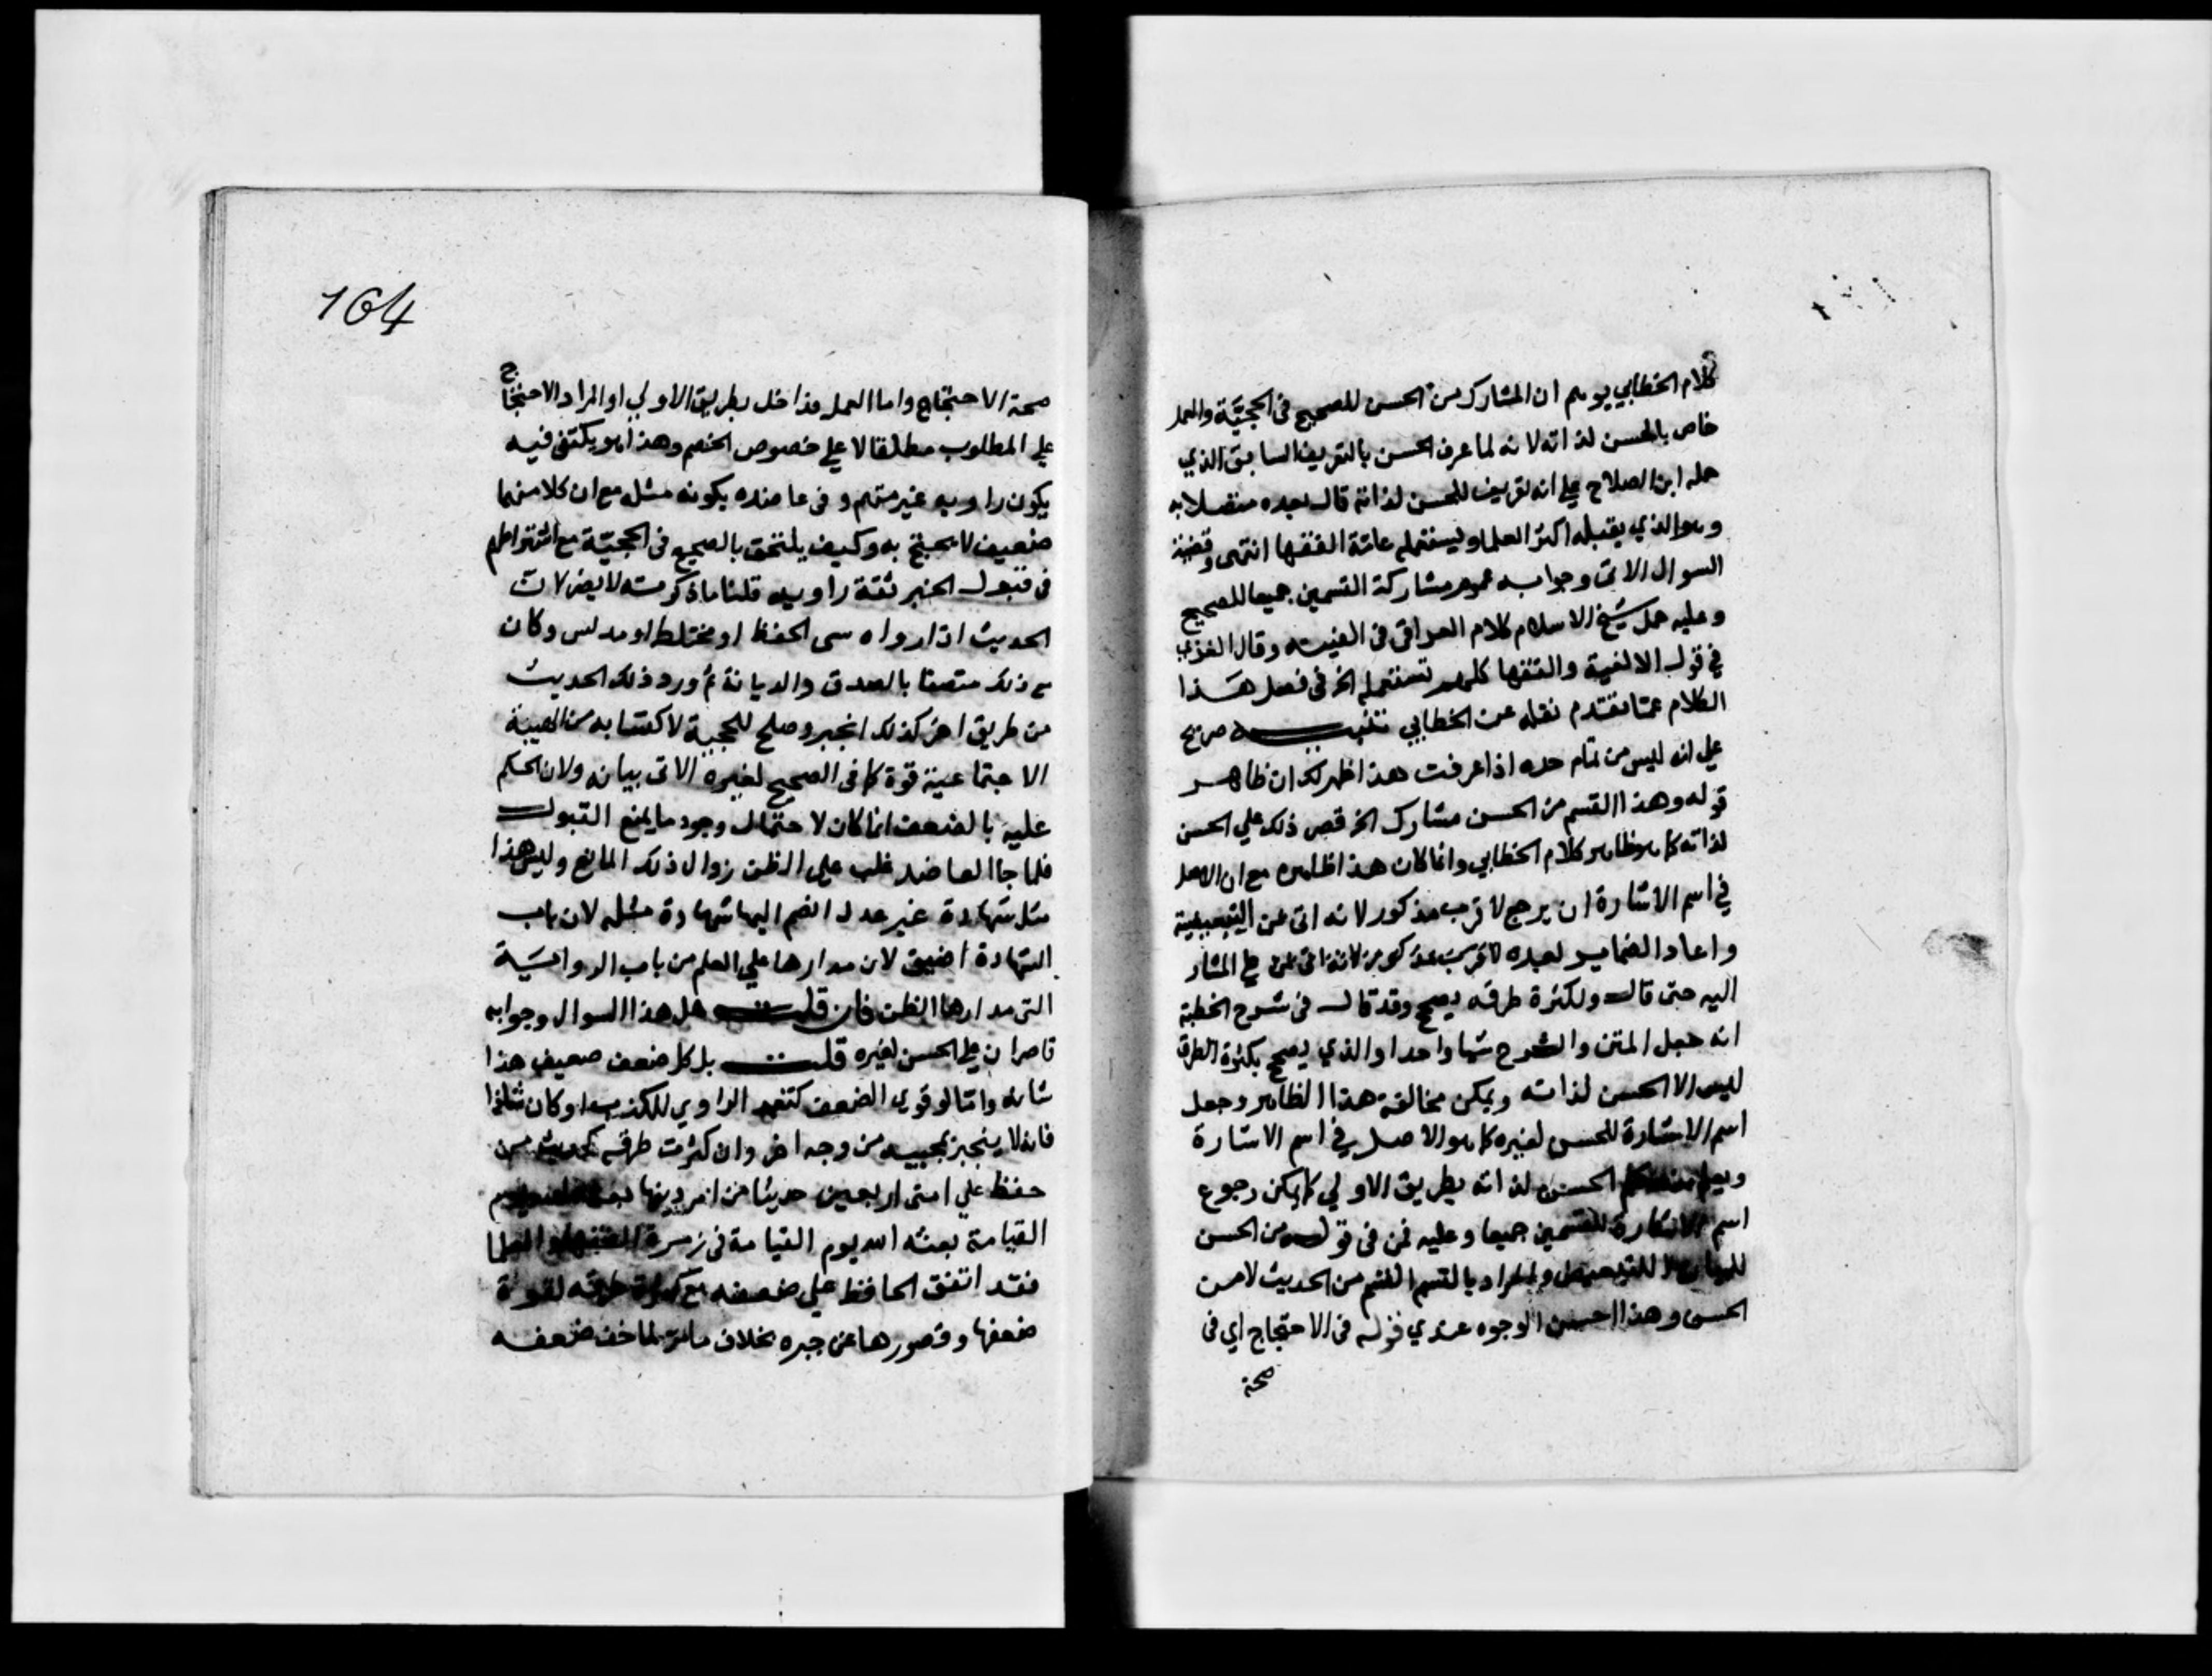 كلام الخطابي يوهم ان المشارك من الحسن للصحيح في الحجيّة والعمل
خاص بالحسن لذاته لانه لما عرف الحسن بالتعريف السابق الذي
حمله ابن الصلاح علي انه تعريف للحسن لذاته قال بعده متصلا به
وهو الذي يقبله اكثر العلما ويستعمله عامّة الفقها انتهى وقضية
السوال الاتي وجوابه عموم مشاركة القسمين جميعا للصحيح
وعليه حمل شيخ الاسلام كلام العراقي في الفيته وقال الغزي
في قول الالفية والفقها كلهم تستعمله الخ في فصل هذا
الكلام عمّا تقدم نقله عن الخطابي تنبيه صريح
علي انه ليس من تمام حده اذا عرفت هذا ظهر لك ان ظاهر
قوله وهذا القسم من الحسن مشارك الخ قصر ذلك علي الحسن
لذاته كما هو ظاهر كلام الخطابي وانما كان هذا ظاهره مع ان الاصل
في اسم الاشارة ان يرجع لاقرب مذكور لانه اتى بمن التبعيضية
واعاد الضماير لعبده لاقرب مذكور لانه اتى علي المشار
اليه حتى قال ولكثرة طرقه يصحح وقد قال في شرح الخطبة
انه جعل المتن والشرح شيا واحدا والذي يصحح بكثرة الطرق
ليس الا الحسن لذاته ويمكن مخالفة هذا الظاهر وجعل
اسم الاشارة للحسن لغيره كما هو الاصل في اسم الاشارة
ويعلم منه حكم الحسن لذاته بطريق الاولي كما يمكن رجوع
اسم الاشارة للقسمين جميعا وعليه فمن في قوله من الحسن
للبيان لا للتبعيض والمراد بالقسم القسم من الحديث لا من
الحسن وهذا احسن الوجوه عندي قوله في الاحتجاج اي في
صحة
164
صحة الاحتجاج واما العمل فداخل بطريق الاولي او المراد الاحتجاج
علي المطلوب مطلقا لا علي خصوص الخصم وهذا هو يكتفي فيه
بكون راويه غير متهم وفي عاضده بكونه مثله مع ان كلا منهما
ضعيف لا يحتج به وكيف يلتحق بالصحيح في الحجيّة مع اشتراطهم
في قبول الخبر ثقة راويه قلنا ما ذكرته لا يضر لان
الحديث اذا رواه سي الحفظ او مختلط او مدلس وكان
مع ذلك متصفا بالصدق والديانة ثم ورد ذلك الحديث
من طريق اخر كذلك انجبر وصلح للحجية لاكتسابه من الهيئة
الاجتماعية قوة كما في الصحيح لغيره الاتي بيانه ولان الحكم
عليه بالضعف انما كان لاحتمال وجود ما يمنع القبول
فلما جا العاضد غلب علي الظن زوال ذلك المانع وليس هذا
مثل شهادة غير عدل انضم اليها شهادة مثله لان باب
الشهادة اضيق لان مدارها علي العلم من باب الرواية
التي مدارها الظن فان قلت هل هذا السوال وجوابه
قاصران علي الحسن لغيره قلت بل كل ضعف ضعيف هذا
شانه واما لو قوي الضعف كتعمد الراوي للكذب او كان شاذا
فانه لا ينجبر بمجييه من وجه اخر وان كثرت طرقه كحديث من
حفظ علي امتي اربعين حديثا من امر دينها يوم
القيامة بعثه الله يوم القيامة في زمرة الفقها والعلما
فقد اتفق الحافظ علي ضعفه مع كثرة طرقه لقوة
ضعفها وقصورها عن جبره بخلاف ما مر لما خف ضعفه